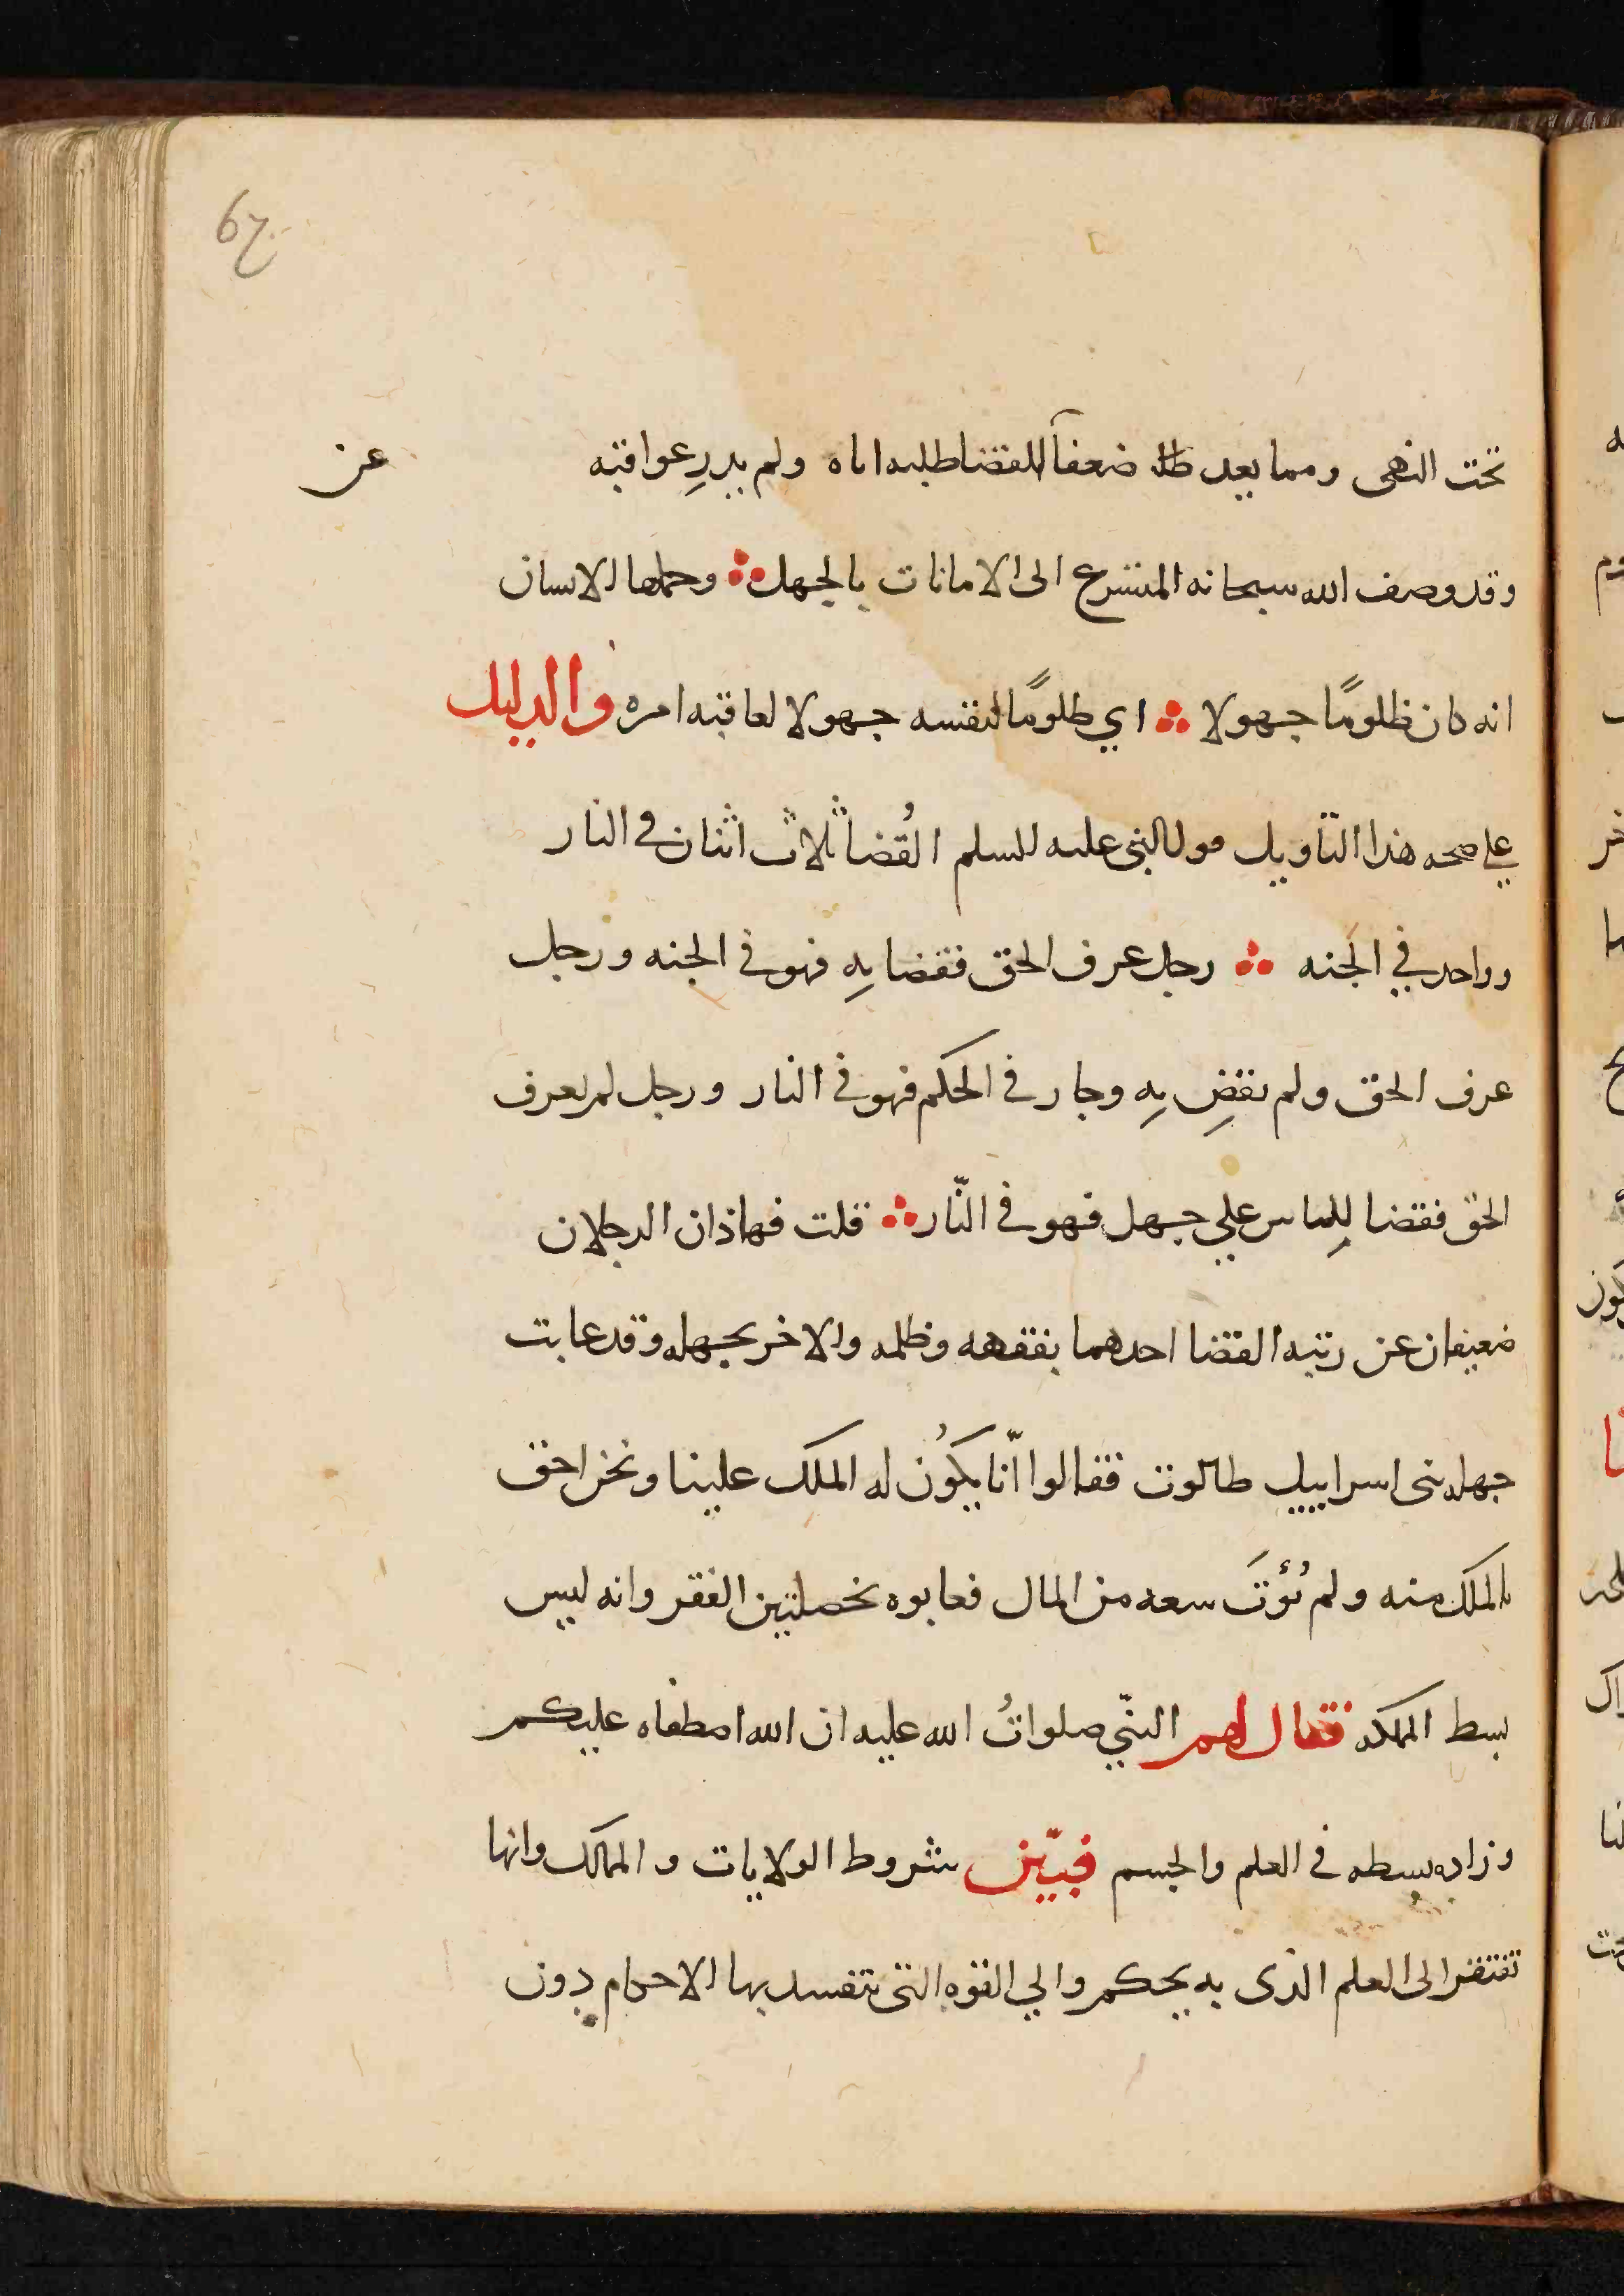 67
تحت النهى ومما يعد طالب ضعفاً للقضا طلبه اياه ولم يدرِ عواقبه
عن
وقد وصف الله سبحانه المتسرع الى الامانات بالجهل ∴ وحملها الانسان
انه كان ظلومًا جهولا ∴ اي ظلومًا لنفسه جهولا لعاقبه امره والدليل
علي صحه هذا التاويل قول النبى عليه السلم القُضاة ثلاث اثنان في النار
وواحد في الجنه ∴ رجل عرف الحق فقضا بِهِ فهو في الجنه ورجل
عرف الحق ولم يقضِ بِهِ وجار في الحكم فهو في النار ورجل لم يعرف
الحقّ فقضا لِلناس علي جهل فهو في النّار ∴ قلت فهاذان الرجلان
ضعيفان عن رتبه القضا احدهما بفقهه وظلمه والاخر بجهله وقد عابت
جهله بنى اسراييل طالوت فقالوا انّا يكوُن له الملك علينا ونحن احق
بالملك منه ولم يُؤتَ سعه من المال فعابوه بخصلتين الفقر وانه ليس
بسط المملكه فقال لهم النبيّ صلواتُ الله عليه ان الله اصطفاه عليكم
وزاده بسطه في العلم والجسم فبيّن شروط الولايات و الممالك وانها
تفتقر الى العلم الذى به يحكم والي القوه التى تنفسد بها الاحكام دون